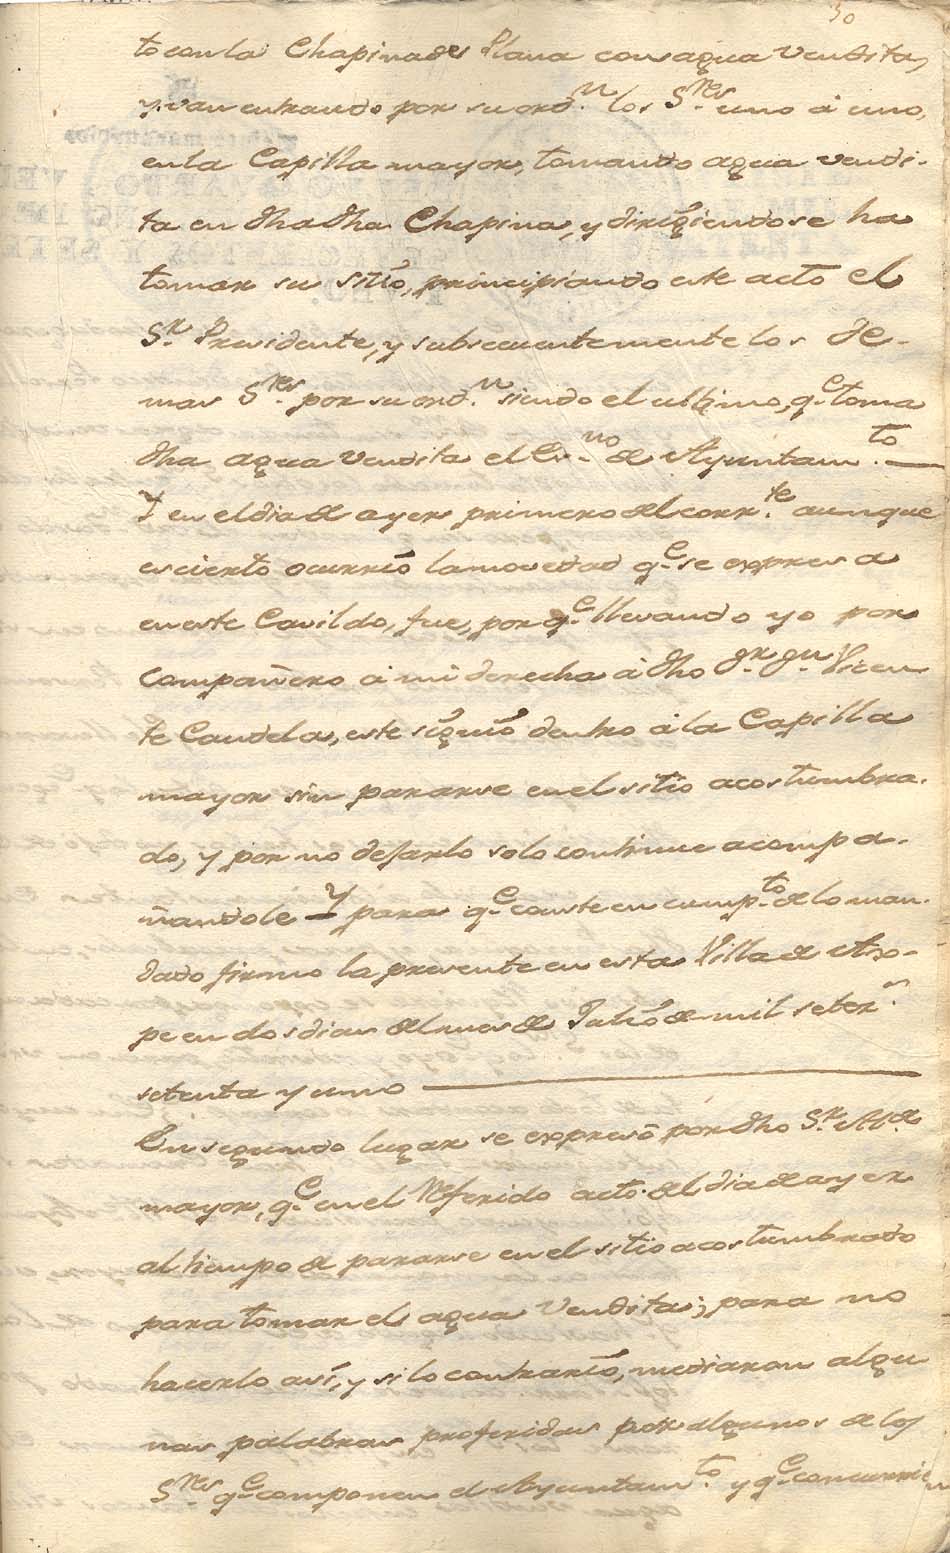 30
to con la Chapina de Plata con agua vendita,
y van entrando por su ord.n los S.res uno à uno,
en la Capilla mayor, tomando agua vendi-
ta en dha dha Chapina, y dirigiendose ha
tomar su sitio, principiando este acto el
S.r Presidente, y subsecuentemente los de-
mas S.res por su ord.n siendo el ultimo, q.e toma
dha agua vendita el Es.no de Ayuntam.to
Y en el dia de ayer primero del corr.te aunque
es cierto ocurrió la novedad q.e se expresa
en este Cavildo, fue, por q.e llevando yo por
compañero à mi derecha à dho d.r d.n Vicen
te Candela, este siguió dentro à la Capilla
mayor sin pararse en el sitio acostumbra-
do, y por no dejarlo solo continue acompa-
ñandole Y para q.e conste en cump.to de lo man-
dado firmo la presente en esta Villa de Axp-
pe en dos dias del mes de Julio de mil setez.s
setenta y uno
En segundo lugar se expresó por dho S.r Al.de
mayor, q.e en el Referido acto del dia de ayer
al tiempo de pararse en el sitio acostumbrado
para tomar el agua vendita; para no
hacerlo así, y si lo contrario, mediaron algu
nas palabras proferidas por algunos de los
S.res q.e componen el Ayuntam.to y q.e concurrie